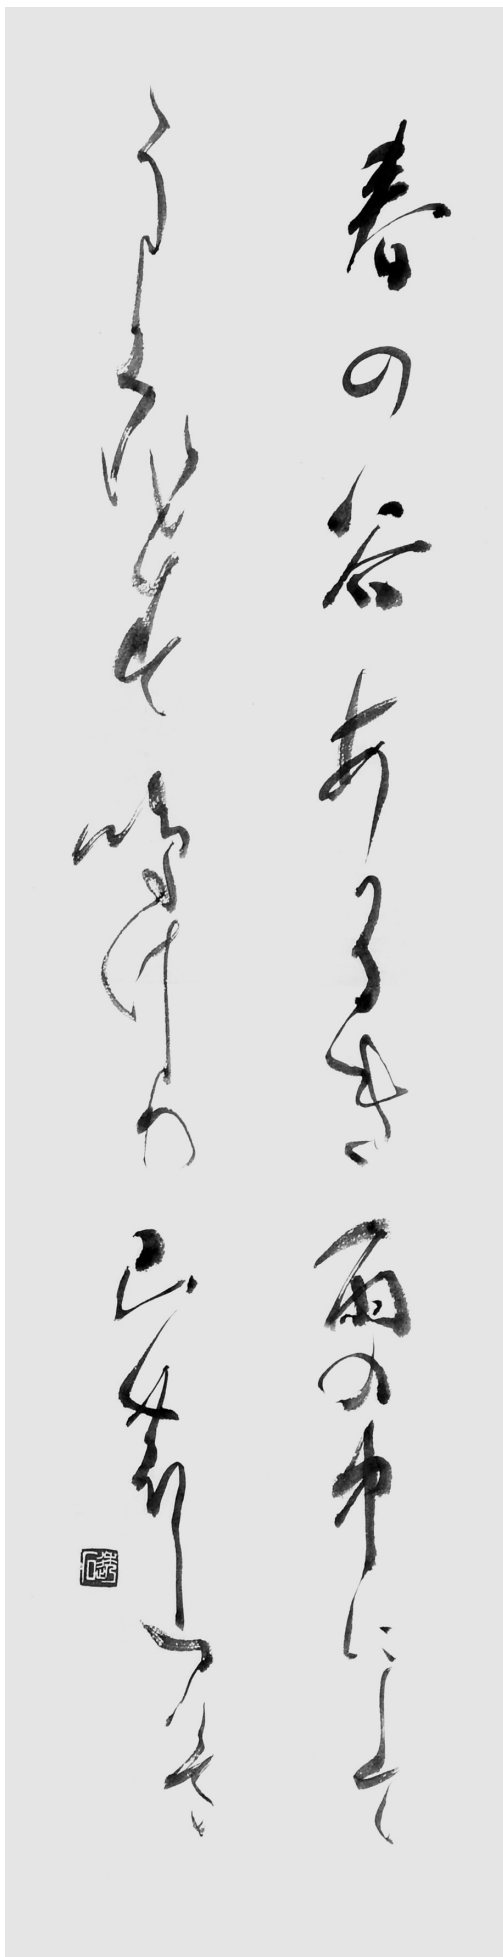 春の谷あかるき雨の中にして
うくひす鳴けり山のしつけさ